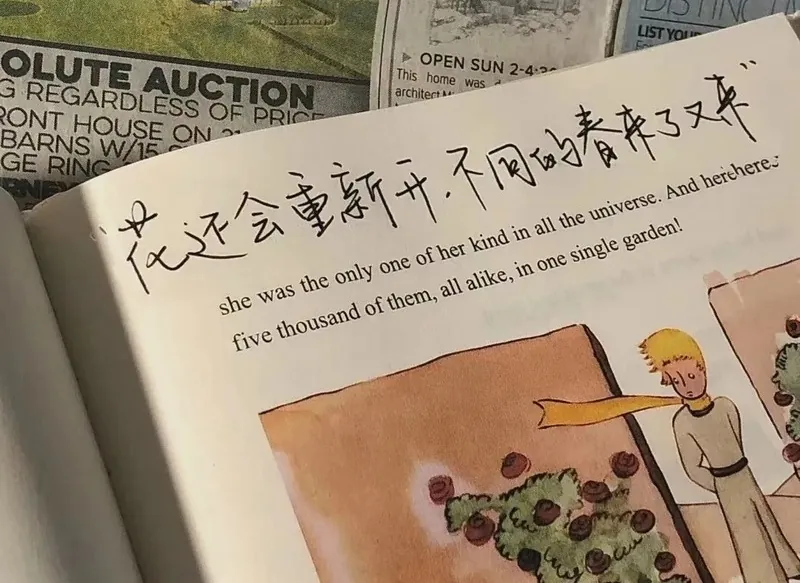 OLUTE AUCTION
G REGARDLESS OF PRICE
RONT HOUSE ON
BARNS W/15
GE RING
OPEN SUN 2-4:30
This home was
architect
DISTINCTIV
LIST YOUR
“花还会重新开,不同的春来了又来”
she was the only one of her kind in all the universe. And here
five thousand of them, all alike, in one single garden!